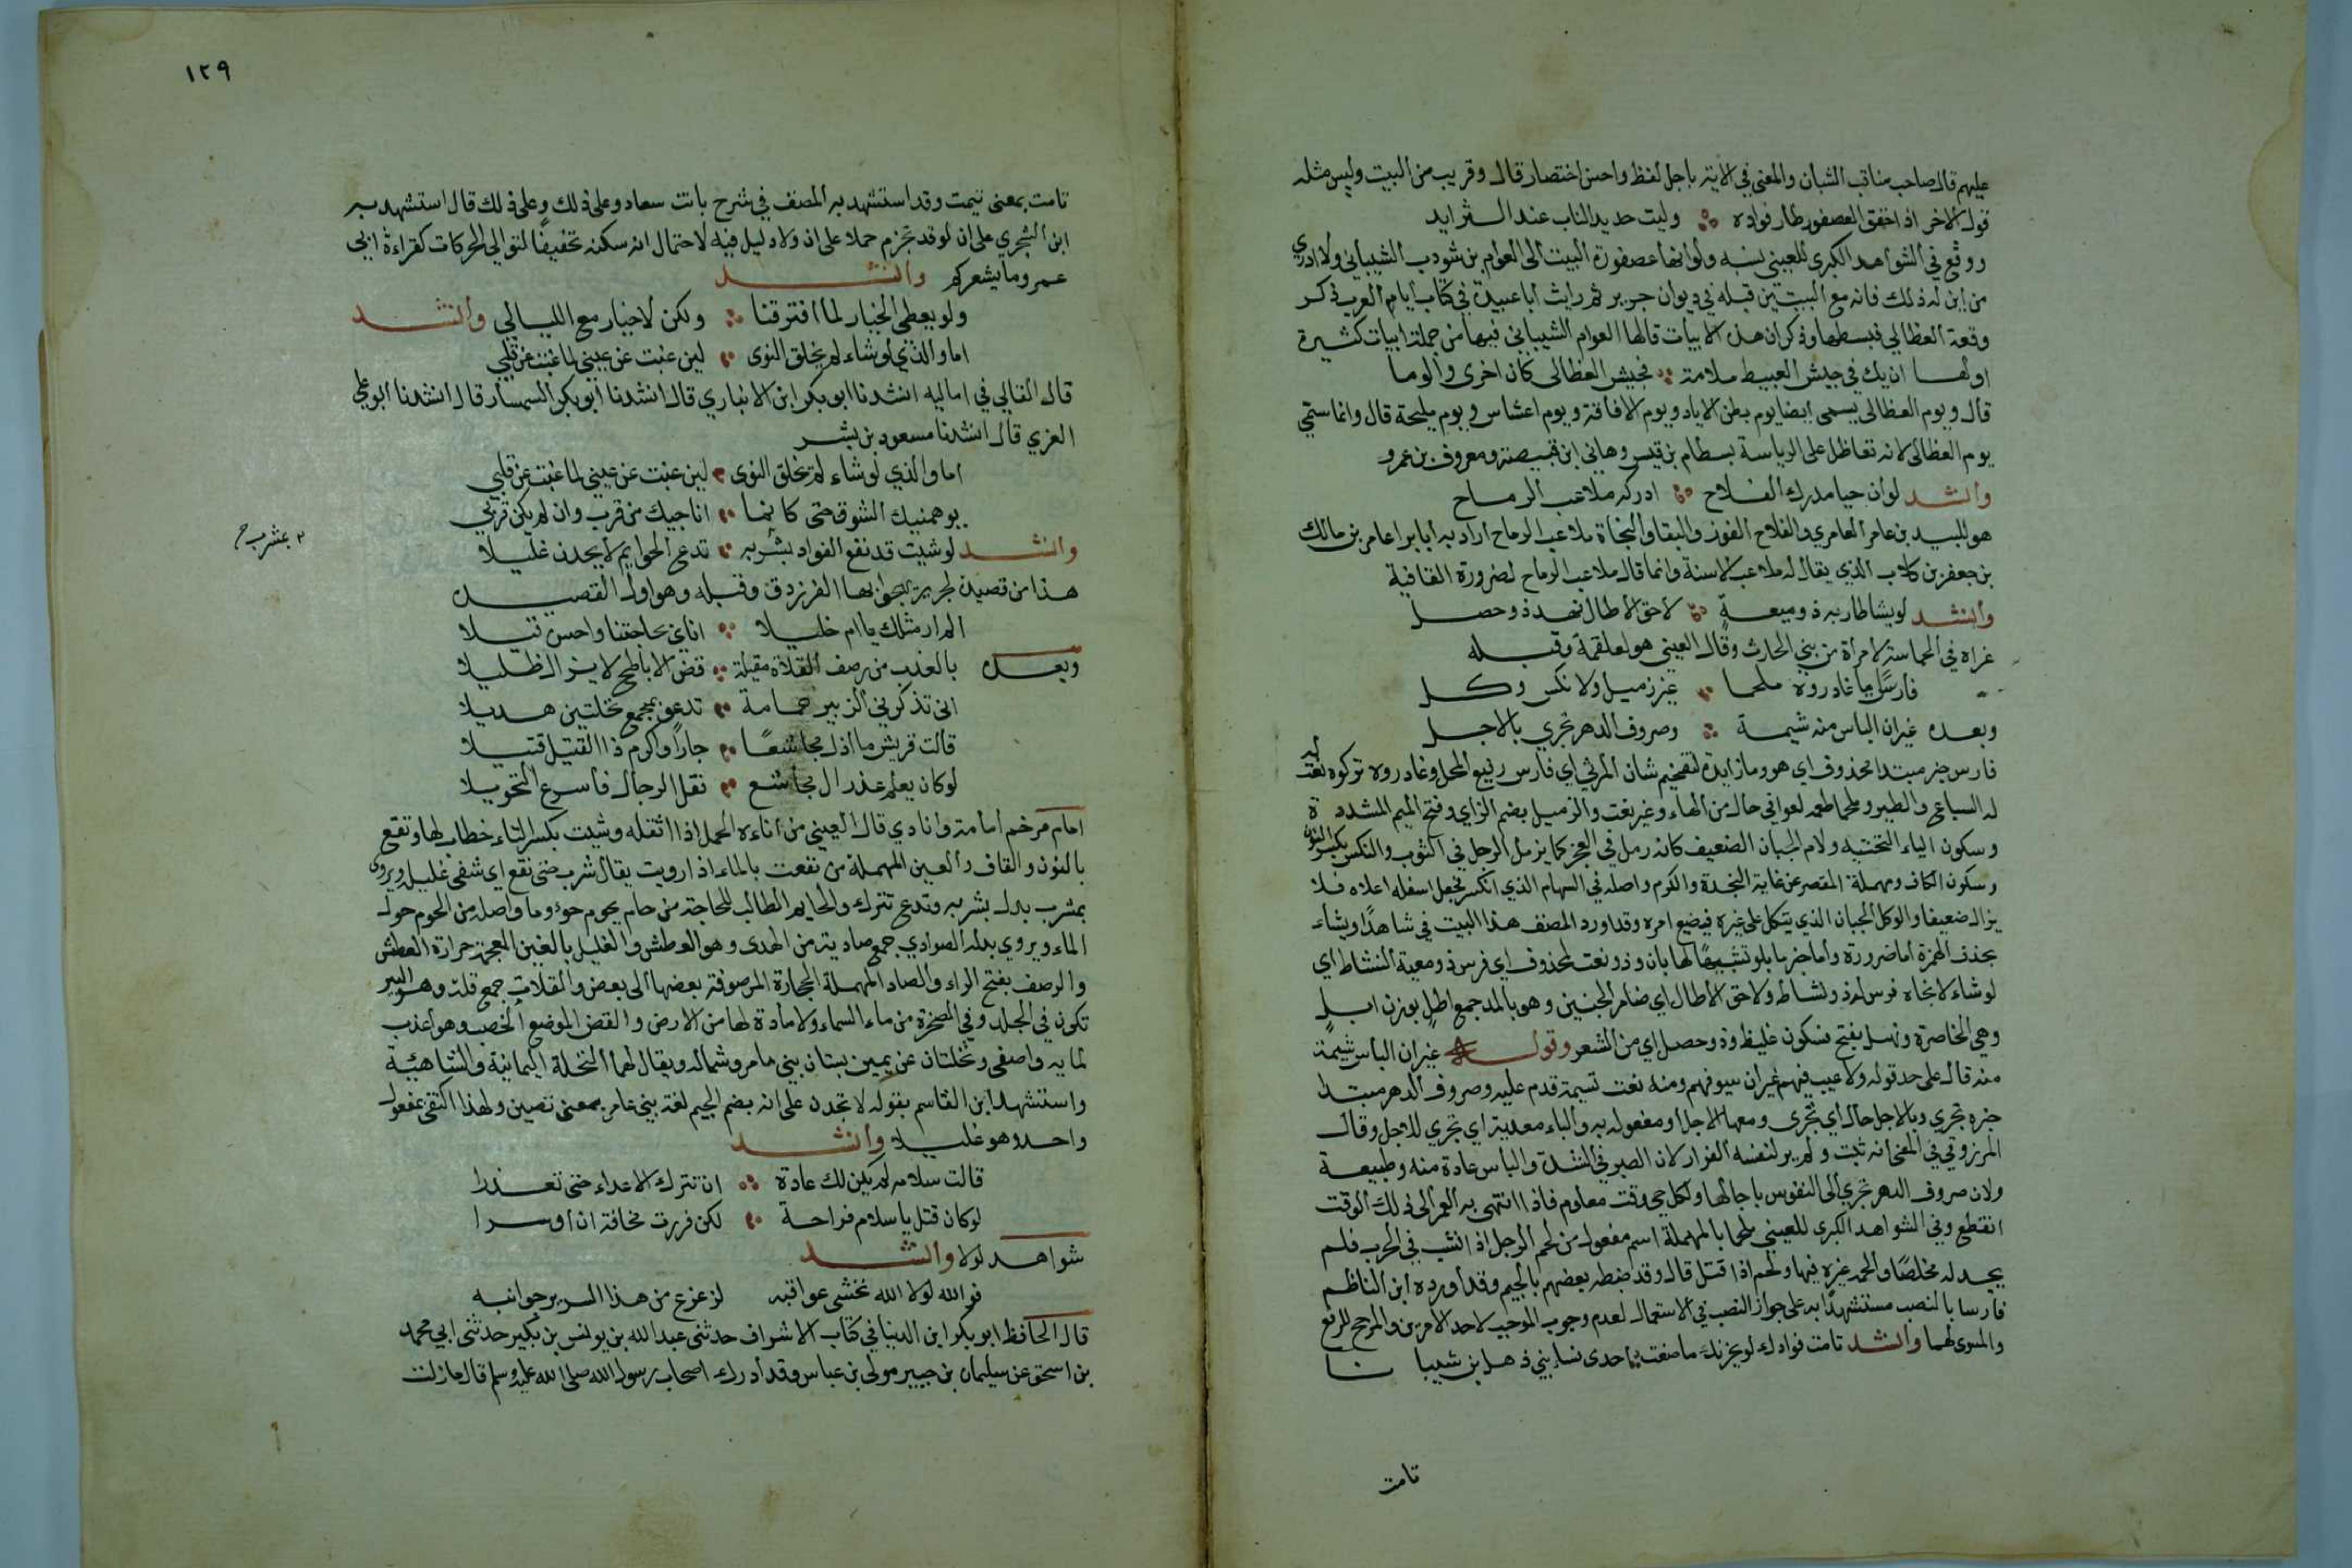 عليهم قال صاحب مناقب الشبان والمعنى في الاية باجل لفظ واحسن اختصار قال وقريب من البيت وليس مثله
قول الاخر اذا خفق العصفور طار فواده وليث حديد الناب عند الثرايد
ووقع في الشواهد الكبرى للعيني نسبة ولو انها عصفورة البيت الى العوام بن شودب الشيباني ولا ادري
من اين له ذلك فانه مع البيتين قبله في ديوان جرير ثم رايت ابا عبيدة في كتاب ايام العرب ذكر
وقعة العظالى فبسطها وذكر ان هذه الابيات قالها العوام الشيباني فيها من جملة ابيات كثيرة
اولها ان يك في جيش الغبيط ملامة فجيش العظالى كان اخزى والوما
قال ويوم العظالى يسمى ايضا يوم بطن الاياد ويوم الافاقة ويوم اعشاش ويوم مليحة قال وانما سمي
يوم العظالى لانه تعاظل على الرياسة بسطام بن قيس وهاني ابن قبيصة ومعروف بن عمرو
وانشد لو ان حيا مدرك الفلاح ادركه ملاعب الرماح
هو للبيد بن عامر العامري والفلاح الفوز والبقا والنجاة ملاعب الرماح اراد به ابا برا عامر بن مالك
بن جعفر بن كلاب الذي يقال له ملاعب الاسنة وانما قال ملاعب الرماح لضرورة القافية
وانشد لو يشا طار به ذو ميعة لاحق الاطال نهد ذو خصل
عزاه في الحماسة لامراة من بني الحارث وقال العيني هو لعلقمة وقبله
فارس ما غادروه ملحما غير زميل ولا نكس وكل
وبعده غير ان الباس منه شيمة وصروف الدهر تجري بالاجل
فارس خبر مبتدا محذوف اي هو وما زايدة لتفخيم شان المرثي اي فارس رفيع المحل وغادروه تركوه نعت
له السباع والطير وملحما طعمه لعوافي حال من الهاء وغير نعت والزميل بضم الزاي وفتح الميم المشددة
وسكون الياء التحتيه ولام الجبان الضعيف كانه زمل في العجز كما يزمل الرجل في الثوب والنكس بكسر النون
وسكون الكاف ومهملة المقصر عن غاية النجدة والكرم واصله في السهام الذي انكسر فجعل اسفله اعلاه فلا
يزال ضعيفا والوكل الجبان الذي يتكل على غيره فيضيع امره وقد اورد المصنف هذا البيت في شاهدا ويشاء
بحذف الهمزة اما ضرورة واما جزما بلو تشبيها لها بان وذو نعت لمحذوف اي فرس ذو ميعة النشاط اي
لو شاء لانجاه فرس له ذو نشاط ولاحق الاطال اي ضامر الجنبين وهو بالمد جمع اطل بوزن ابل
وهي الخاصرة ونهد بفتح فسكون غليظ وذو وخصل اي من الشعر وقوله غير ان الباس شيمة
منه قال على حد قوله ولا عيب فيهم غير ان سيوفهم ومنه نعت شيمة قدم عليه وصروف الدهر مبتدا
خبره تجري وبالاجل حال اي تجرى ومعها الاجل او مفعول به والباء معدية اي تجري للاجل وقال
المرزوقي في المعنى انه ثبت ولم ير لنفسه الفرار لان الصبر في الشدة والباس عادة منه وطبيعة
ولان صروف الدهر تجري الى النفوس باجالها ولكل حي وقت معلوم فاذا انتهى به العمر الى ذلك الوقت
انقطع وفي الشواهد الكبرى للعيني ملحما بالمهملة اسم مفعول من لحم الرجل اذا نشب في الحرب فلم
يجد له مخلصا والحمه غيره فيها ولحم اذا قتل قال وقد ضبطه بعضهم بالجيم وقد اورده ابن الناظم
فارسا بالنصب مستشهدا به على جواز النصب في الاستعمال لعدم وجوب الموجب لاحد الامرين والمرجح للرفع
والمسوى لهما وانشد تامت فوادك لو يحزنك ما صنعت احدى نساء بني ذهل بن شيبانا
تامت
١٢٩
تامت بمعنى تيمت وقد استشهد به المصنف في شرح بانت سعاد وعلى ذلك وعلى ذلك قال استشهد به
ابن الشجري على ان لو قد تجزم حملا على ان ولا دليل فيه لاحتمال انه سكنه تخفيفا لتوالي الحركات كقراءة ابي
عمرو وما يشعركم وانشد
ولو يعطى الخيار لما افترقنا ولكن لا خيار مع الليالي وانشد
اما والذي لو شاء لم يخلق النوى لين غبت عن عيني لما غبت عن قلبي
قال القالي في اماليه انشدنا ابو بكر ابن الانباري قال انشدنا ابو بكر السمسار قال انشدنا ابو علي
العزي قال انشدنا مسعود بن بشر
اما والذي لو شاء لم يخلق النوى لين غبت عن عيني لما غبت عن قلبي
يوهمنيك الشوق حتى كانما اناجيك من قرب وان لم يكن قربي
وانشد لو شيت قد نقع الفواد بشربه تدع الحوايم لا يجدن غليلا
٢ بمشرب ح
هذا من قصيدة لجرير يهجو بها الفرزدق وقبله وهو اول القصيد
لم ار مثلك يا امام خليلا اناى بحاجتنا واحسن قيلا
وبعده بالعذب من رصف القلاة مقيلة قض الاباطح لا يزال ظليلا
انى تذكرني الزبير حمامة تدعو بمجمع نخلتين هديلا
قالت قريش ما اذل مجاشعا جارا واكرم ذا القتيل قتيلا
لو كان يعلم غدر ال مجاشع نقل الرحال فاسرع التحويلا
امام مرخم امامة وانادي قال العيني من اناءه الحمل اذا اثقله وشيت بكسر التاء خطاب لها ونقع
بالنون والقاف والعين المهملة من نقعت بالماء اذا رويت يقال شرب حتى نقع اي شفى غليله ويروى
بمشرب بدل بشربه وتدع تترك والحايم الطالب للحاجة من حام يحوم حوء وما واصله من الحوم حول
الماء ويروي بدله الصوادي جمع صادية من الصدى وهو العطش والغليل بالغين المعجمة حرارة العطش
والرصف بفتح الراء والصاد المهملة الحجارة المرصوفة بعضها الى بعض والقلات جمع قلت وهو البير
تكون في الجبل وفي الصخرة من ماء السماء ولا مادة لها من الارض والقض الموضع الخصب وهو اعذب
لمايه واصفى ونخلتان عن يمين بستان بني عامر وشماله ويقال لهما النخلة اليمانية والشاهية
واستشهد ابن القاسم بقوله لا تجدن على انه بضم الجيم لغة بني عامر بمعنى تصبن ولهذا اكتفى بمفعول
واحد وهو غليلا وانشد
قالت سلامه لم يكن لك عادة ان تترك الاعداء حتى تعذرا
لو كان قتل يا سلام فراحة لكن فررت مخافة ان اوسرا
شواهد لولا وانشد
فوالله لولا الله تخشى عواقبه لزعزع من هذا السرير جوانبه
قال الحافظ ابو بكر ابن الدنيا في كتاب الاشراف حدثني عبدالله بن يونس بن بكير حدثني ابي محمد
بن اسحق عن سليمان بن جبير مولى بن عباس وقد ادرك اصحاب رسول الله صلى الله عليه وسلم قال ما زلت